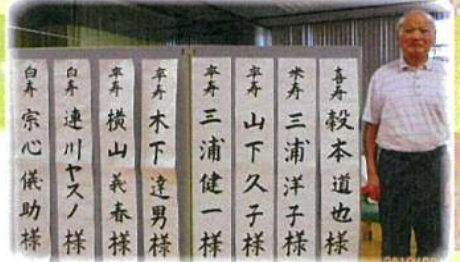 喜寿 榖本道也様
米寿 三浦洋子様
卒寿 山下久子様
卒寿 三浦健一様
卒寿 木下達男様
卒寿 横山義春様
白寿 連川ヤスノ様
白寿 宗心儀助様